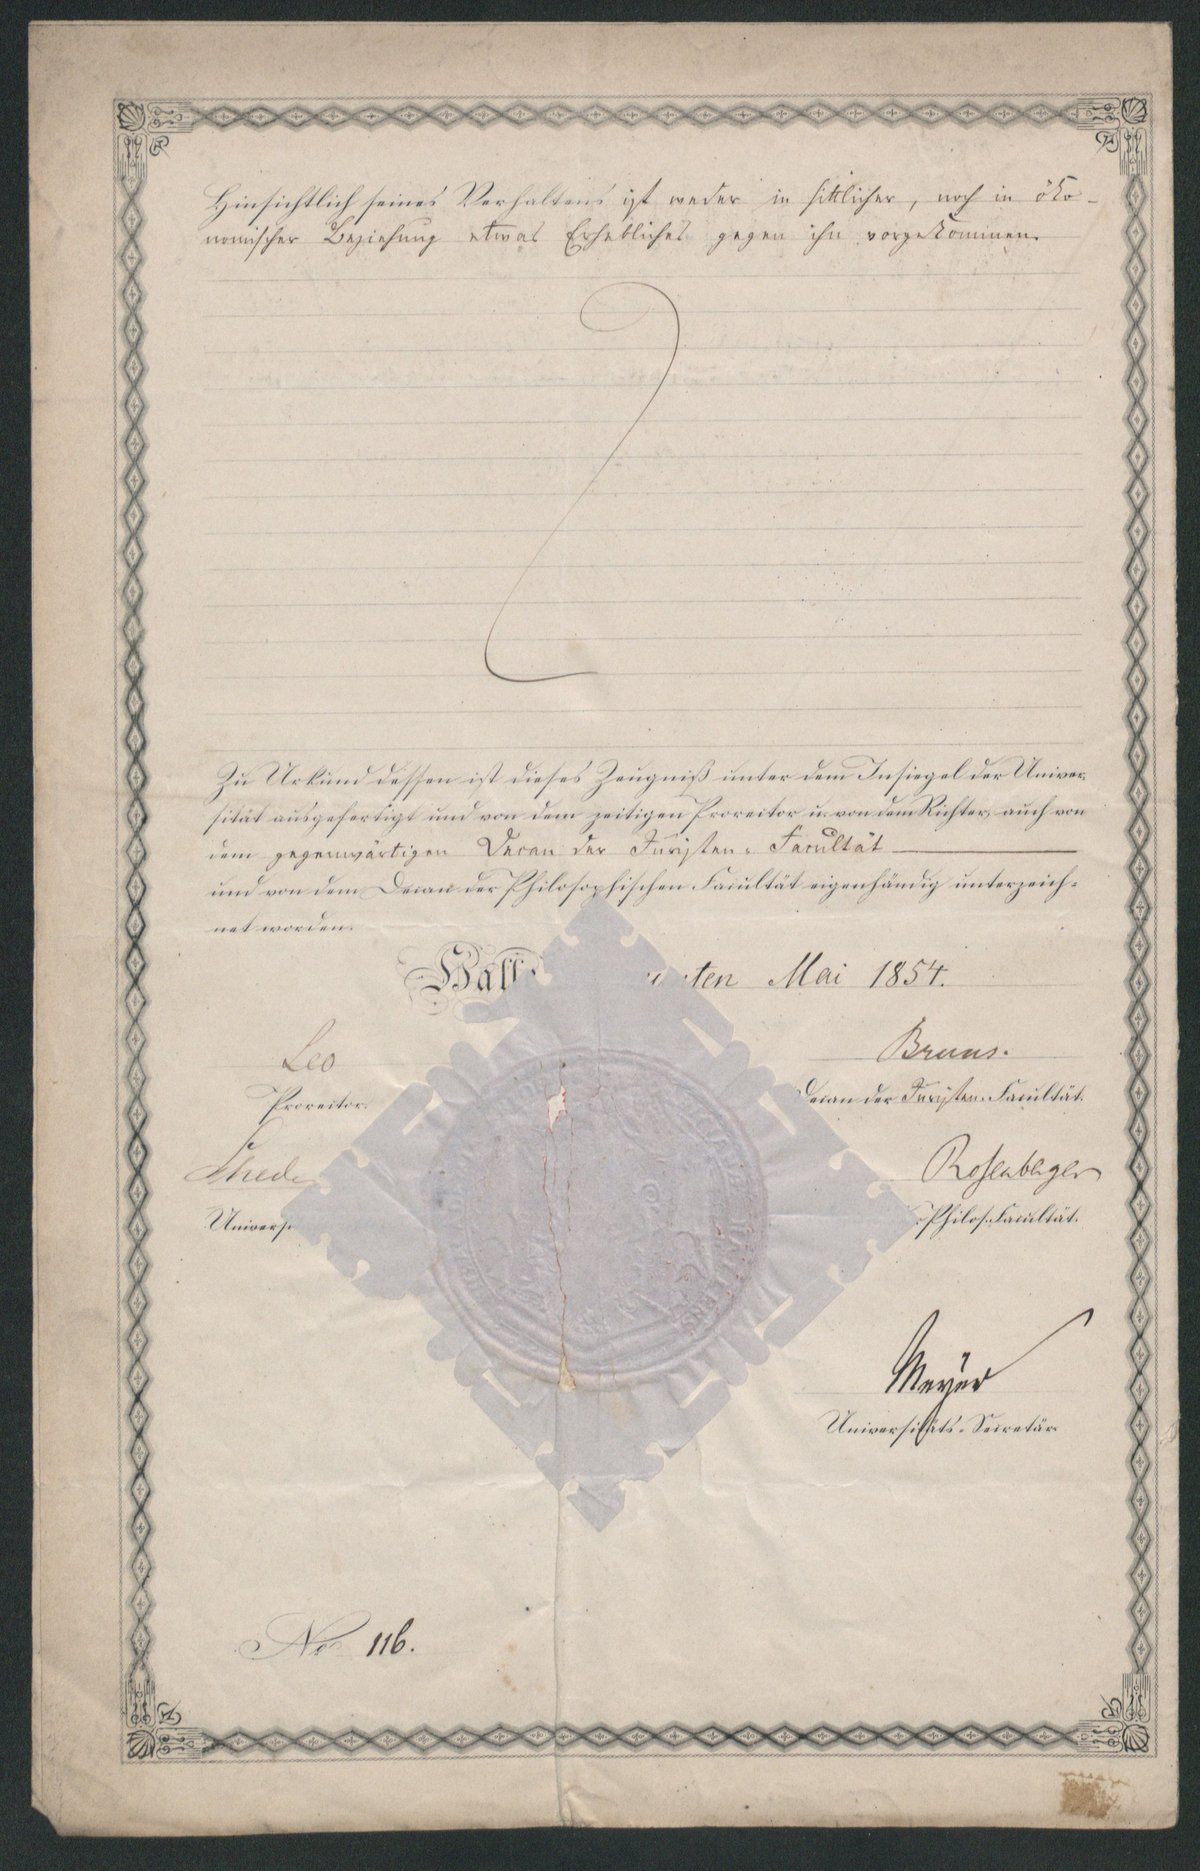 Hinsichtlich seines Verhaltens ist weder in sittlicher, noch in öko-
nomischer Beziehung etwas Erhebliches gegen ihn vorgekommen.
Zu Urkund dessen ist dieses Zeugniß unter dem Insiegel der Univer-
sität ausgefertigt und von dem zeitigen Prorector u. von dem Richter, auch von
dem gegenwärtigen Decan der Juristen-Facultät
und von dem Decan der Philosophischen Facultät eigenhändig unterzeich-
net worden.
Hall ten Mai 1854.
Leo
Prorector.
Bruns.
Decan der Juristen-Facultät.
Rosenberger
Univers
Philos. Facultät.
Meyer
Universitäts-Secretär.
No 116.